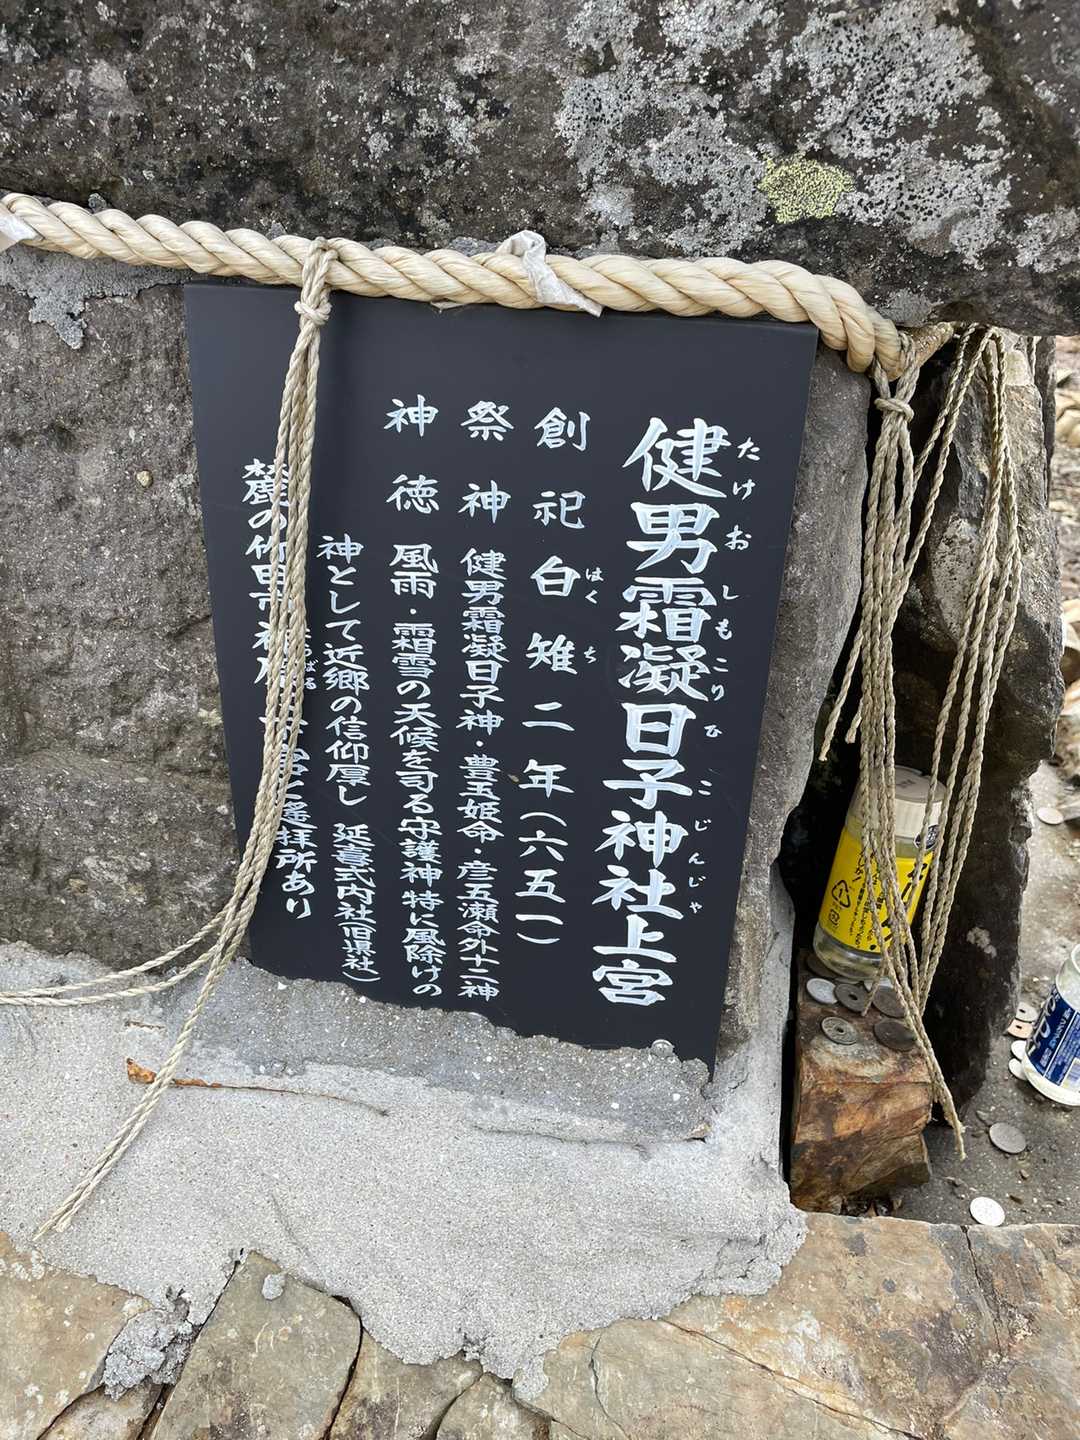 健男霜凝日子神社上宮
たけおしもこりひこじんじゃ
創祀 白雉二年(六五一)
はくち
祭神 健男霜凝日子神・豊玉姫命・彦五瀬命外十二神
神徳 風雨・霜雪の天候を司る守護神特に風除けの
神として近郷の信仰厚し 延喜式内社旧県社)
麓の竹田市神原
遙拝所あり